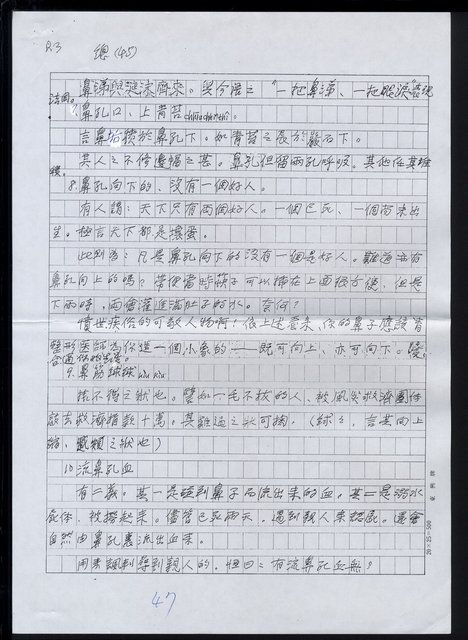 P.3
總(45)
鼻涕與淚來。吳今居之"一把鼻涕、一把眼淚"
法同。
7.鼻孔口、上青苔
言鼻垢積於鼻孔下。如青苔之長於巖石下。
其人之不修邊幅之甚。鼻孔但留兩孔呼吸。其他任其堆
積。
8.鼻孔向下的、沒有一個好人。
有人謂:天下只有兩個好人。一個已死、一個尚未出
生。極言天下都是壞蛋。
此則為:凡是鼻孔向下的沒有一個是好人。難道沒有
鼻孔向上的嗎?筷子可以插在上面很方便、但是
下雨時、雨會灌進滿肚子的水。奈何?
憤世疾俗的可敬人物啊!依上述看來、你的鼻子應該看
整形醫師為你造一個小象的——既可向上、亦可向下。
9.鼻筋
捨不得之狀也。譬如一毛不拔的人、被風災救濟團體
說去救濟捐款十萬。其難過之狀可掬。(言其向上
縮、之狀也)
10.流鼻孔血
有二義。其一是碰到鼻子而流出來的血。其二是溺水
死体、被撈起來。儘管已死兩天、遇到親人來認屍。還會
自然由鼻孔裏流出血來。
用來諷刺得到親人的、但曰:有流鼻孔血無?
20×25=500
47